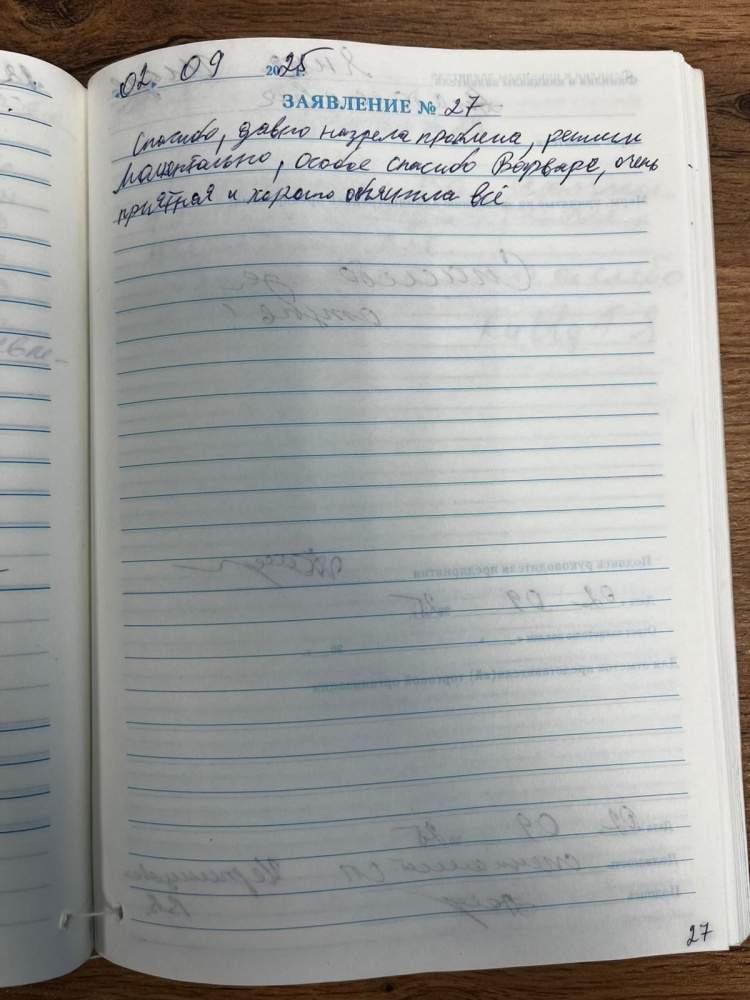 02. 09 2025 г.
ЗАЯВЛЕНИЕ № 27
Спасибо, давно назрела проблема, решили
моментально, особое спасибо Варваре, очень
приятная и хорошо объяснила всё
27